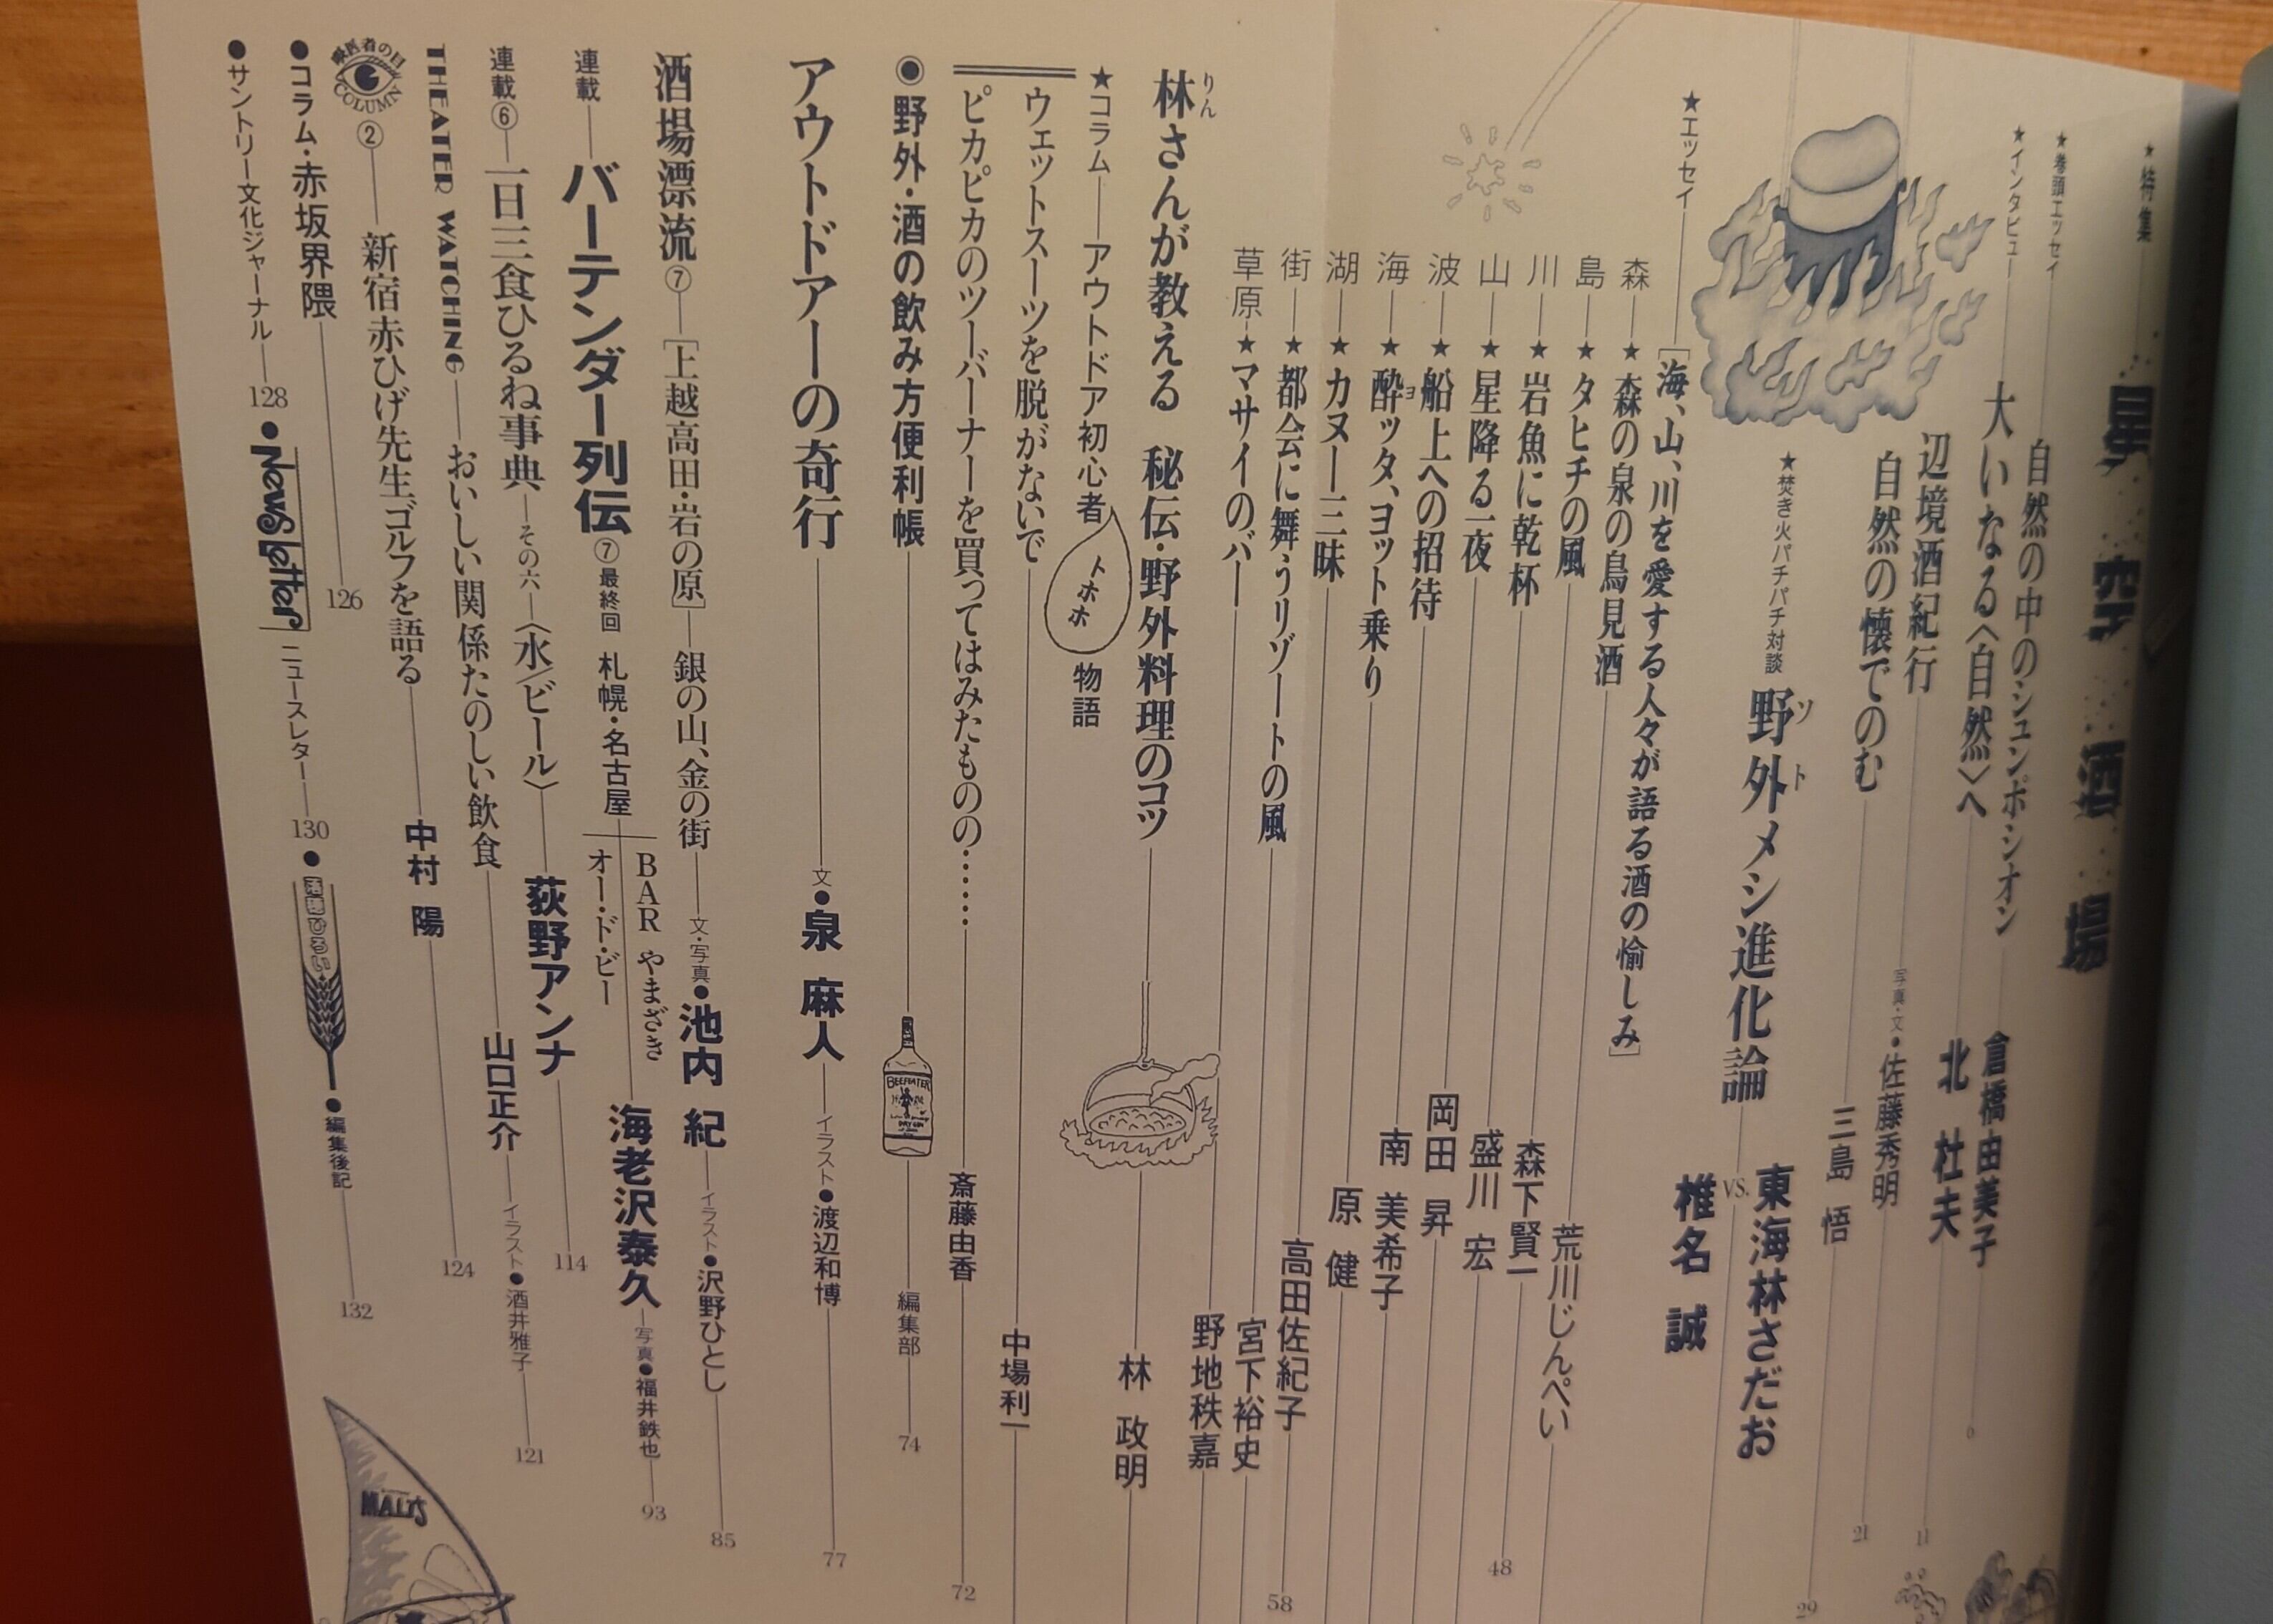 ★特集
星空酒場
★巻頭エッセイ
自然の中のシュンポシオン
倉橋由美子
★インタビュー
大いなる〈自然〉へ
北 杜夫
辺境酒紀行
写真・文●佐藤秀明
11
自然の懐でのむ
三島 悟
21
★焚き火パチパチ対談
野外メシ進化論
ソト
東海林さだお
VS.
椎名 誠
29
★エッセイ
[海、山、川を愛する人々が語る酒の愉しみ]
森―★森の泉の鳥見酒
荒川じんぺい
島―★タヒチの風
森下賢一
48
川―★岩魚に乾杯
盛川 宏
山―★星降る一夜
岡田 昇
波―★船上への招待
南 美希子
海―★酔ッタ、ヨット乗り
ヨ
原 健
湖―★カヌー三昧
高田佐紀子
58
街―★都会に舞うリゾートの風
宮下裕史
草原―★マサイのバー
野地秩嘉
林さんが教える 秘伝・野外料理のコツ
りん
林 政明
★コラム―アウトドア初心者トホホ物語
ウェットスーツを脱がないで
中場利一
ピカピカのツーバーナーを買ってはみたものの……
斎藤由香
72
◉野外・酒の飲み方便利帳
BEEFEATER
DRY GIN
編集部
74
アウトドアーの奇行
文●泉 麻人
イラスト●渡辺和博
77
酒場漂流⑦―[上越高田・岩の原]―銀の山、金の街
文・写真●池内 紀
イラスト●沢野ひとし
85
連載―バーテンダー列伝⑦最終回 札幌・名古屋
BAR やまざき
オー・ド・ビー
海老沢泰久
写真●福井鉄也
93
連載⑥―一日三食ひるね事典―その六―〈水/ビール〉
荻野アンナ
114
THEATER WATCHING―おいしい関係たのしい飲食
山口正介
イラスト●酒井雅子
121
医者の目
COLUMN
②―新宿赤ひげ先生ゴルフを語る
中村 陽
124
●コラム・赤坂界隈
126
●サントリー文化ジャーナル
128
●News Letter ニュースレター
130
●落穂ひろい
●編集後記
132
MALTS